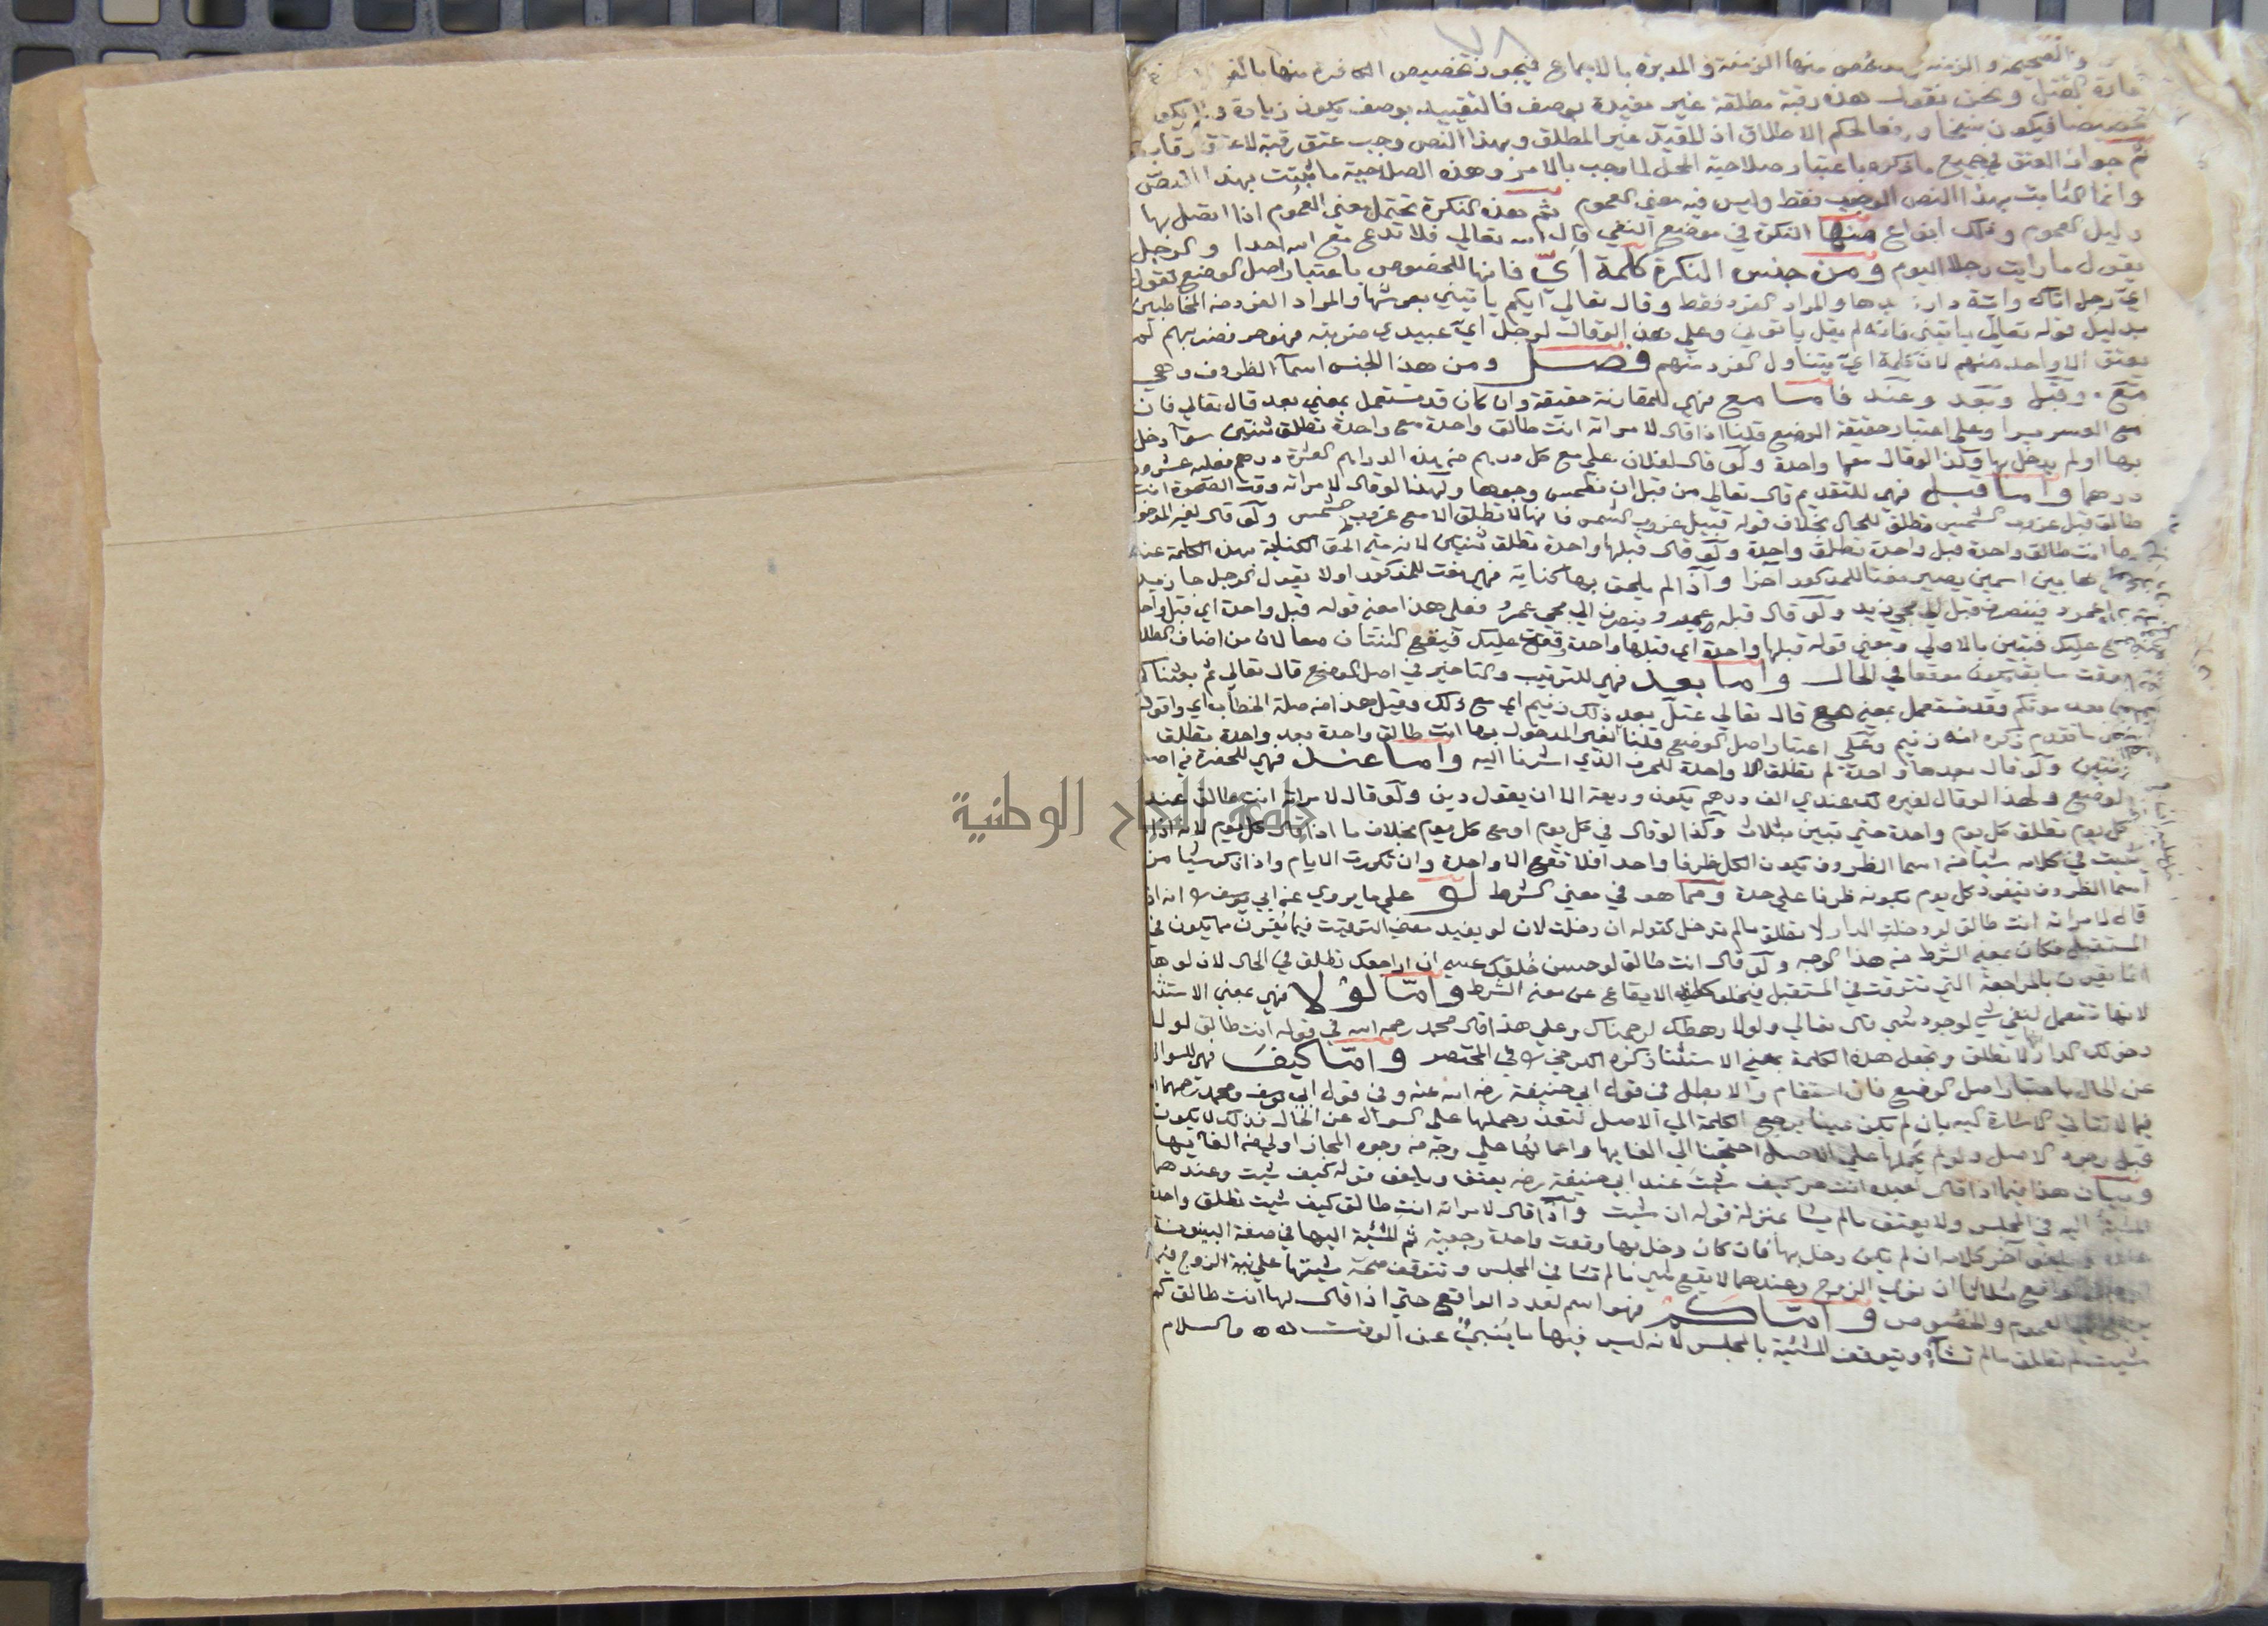 ٧٨
والصحيحة والزمنة وقد خص منها الزمنة والمدبرة بالاجماع فيجوز تخصيص الكافرة منها بالقياس
كفارة القتل ونحن نقول هذه رقبة مطلقة غير مقيدة بوصف فالتقييد بوصف يكون زيادة ولا يكون
تخصيصا فيكون نسخا ورفعا لحكم الاطلاق اذ المقيد غير المطلق وبهذا النص وجب عتق رقبة لا عتق رقاب
ثم جواز العتق في جميع ما ذكره باعتبار صلاحية المحل لما وجب بالامر وهذه الصلاحية ما ثبتت بهذا النص
وانما الثابت بهذا النص الوجوب فقط وليس فيه معني العموم ثم هذه النكرة تحتمل معني العموم اذا اتصل بها
دليل العموم وذلك انواع منها النكرة في موضع النفي قال الله تعالي فلا تدع مع الله احدا والرجل
يقول ما رايت رجلا اليوم ومن جنس النكرة كلمة ايّ فانها للخصوص باعتبار اصل الوضع تقول
اي رجل اتاك واية دار تريدها والمراد الفرد فقط وقال تعالي ايكم ياتيني بعرشها والمراد الفرد من المخاطبين
بدليل قوله تعالي ياتيني فانه لم يقل ياتوني وعلي هذا لو قال لرجل اي عبيدي ضربته فهو حر فضربهم لم
يعتق الا واحد منهم لان كلمة اي يتناول الفرد منهم فصل ومن هذا الجنس اسمآ الظروف وهي
مع وقبل وبعد وعند فاما مع فهي للمقارنة حقيقة وان كان قد تستعمل بمعني بعد قال تعالي فان
مع العسر يسرا وعلي اعتبار حقيقة الوضع قلنا اذا قال لامراته انت طالق واحدة مع واحدة تطلق ثنتين سوآ دخل
بها او لم يدخل بها وكذا لو قال معها واحدة ولو قال لفلان علي مع كل درهم من هذه الدراهم العشرة درهم فعليه عشرون
درهما واما قبل فهي للتقديم قال تعالي من قبل ان نطمس وجوها ولهذا لو قال لامراته وقت الضحوة انت
طالق قبل غروب الشمس تطلق للحال بخلاف قوله قبيل غروب الشمس فانها لا تطلق الا مع غروب الشمس ولو قال لغير المدخول
بها انت طالق واحدة قبل واحدة تطلق واحدة ولو قال قبلها واحدة تطلق ثنتين لانه متي الحق الكناية بهذه الكلمة عند
ذكرها بين اسمين يصير نعتا للمذكور آخرا واذا لم يلحق بها كناية فهي نعت للمذكور اولا يقول الرجل جا زيد
قبل عمرو فينصرف قبل الي مجي زيد ولو قال قبله عمرو ينصرف الي مجي عمرو فعلي هذا معني قوله قبل واحدة اي قبل واحدة
تقع عليك فتبين بالاولي ومعني قوله قبلها واحدة اي قبلها واحدة وقعت عليك فيقع الثنتان معا لان من اضاف الطلاق
الي وقت سابق يكون موقعا في الحال واما بعد فهي للترتيب والتاخير في اصل الوضع قال تعالي ثم بعثناكم
من بعد موتكم وقد تستعمل بمعني مع قال تعالي عتل بعد ذلك زنيم اي مع ذلك وقيل هذا من صلة الخطاب اي واقول
بعد ما تقدم ذكره انه زنيم وعلي اعتبار اصل الوضع قلنا لغير المدخول بها انت طالق واحدة بعد واحدة تطلق
ثنتين ولو قال بعدها واحدة لم تطلق الا واحدة للحرف الذي اشرنا اليه واما عند فهي للحضرة في اصل
الوضع ولهذا لو قال لغيره لك عندي الف درهم يكون وديعة الا ان يقول دين ولو قال لامراته انت طالق عند
كل يوم تطلق كل يوم واحدة حتي تبين بثلاث وكذا لو قال في كل يوم او مع كل يوم بخلاف ما اذا قال كل يوم لانه اذا لم
يثبت في كلامه شيا من اسما الظروف يكون الكل ظرفا واحدا فلا تقع الا واحدة وان تكررت الايام واذا ذكر شيا من
اسما الظروف يتفرد كل يوم بكونه ظرفا علي حدة ومما هو في معني الشرط لو علي ما يروي عن ابي يوسف انه اذا
قال لامراته انت طالق لو دخلت الدار لا تطلق ما لم تدخل كقوله ان دخلت لان لو يفيد معني التوقيت فيما يقرن به مما يكون في
المستقبل فكان بمعني الشرط من هذا الوجه ولو قال انت طالق لو حسن خلقك عسي ان اراجعك تطلق في الحال لان لو ها
انما يقرن بالمراجعة التي تترقب في المستقبل فيخلو كلمة الايقاع عن معني الشرط وامّا لولا فهي بمعني الاستثنا
لانها تستعمل لنفي شي لوجود شي قال تعالي ولولا رهطك لرجمناك وعلي هذا قال محمد رحمه الله في قوله انت طالق لولا
دخولك الدار لا تطلق وتجعل هذه الكلمة بمعني الاستثنا ذكره الكرخي في المختصر وامّا كيف فهي للسوال
عن الحال باعتبار اصل الوضع فان استقام والا بطل في قول ابي حنيفة رضي الله عنه وفي قول ابي يوسف ومحمد رحمهما الله
فيما لا تتاتي الاشارة اليه بان لم يكن عينا يرجع الكلمة الي الاصل لتعذر حملها علي السوال عن الحال فذلك لا يكون
قبل وجود الاصل ولو لم يحملها علي الاصل احتجنا الي الغايها واعمالها علي وجه من وجوه المجاز اولي من الغآيها
وبيان هذا فيما اذا قال لعبده انت حر كيف شيت عند ابي حنيفة رضه يعتق ويلغو قوله كيف شيت وعندهما
المشية اليه في المجلس ولا يعتق ما لم يشا بمنزلة قوله ان شيت واذا قال لامراته انت طالق كيف شيت تطلق واحدة
عنده ويلغو آخر كلامه ان لم يكن دخل بها فان كان دخل بها وقعت واحدة رجعية ثم المشية اليها في صفة البينونة
الواقع ثلاثا ان نوي الزوج وعندهما لا يقع شي ما لم تشا في المجلس وتتوقف صحة شيتها علي نية الزوج فيما
يرجع الي العموم والخصوص وامّا كم فهو اسم لعدد الواقع حتي اذا قال لها انت طالق كم
شيت لم تطلق ما لم تشآ ويتوقف المشية بالمجلس لانه ليس فيها ما ينبئ عن الوقت والسلام
جامعة النجاح الوطنية